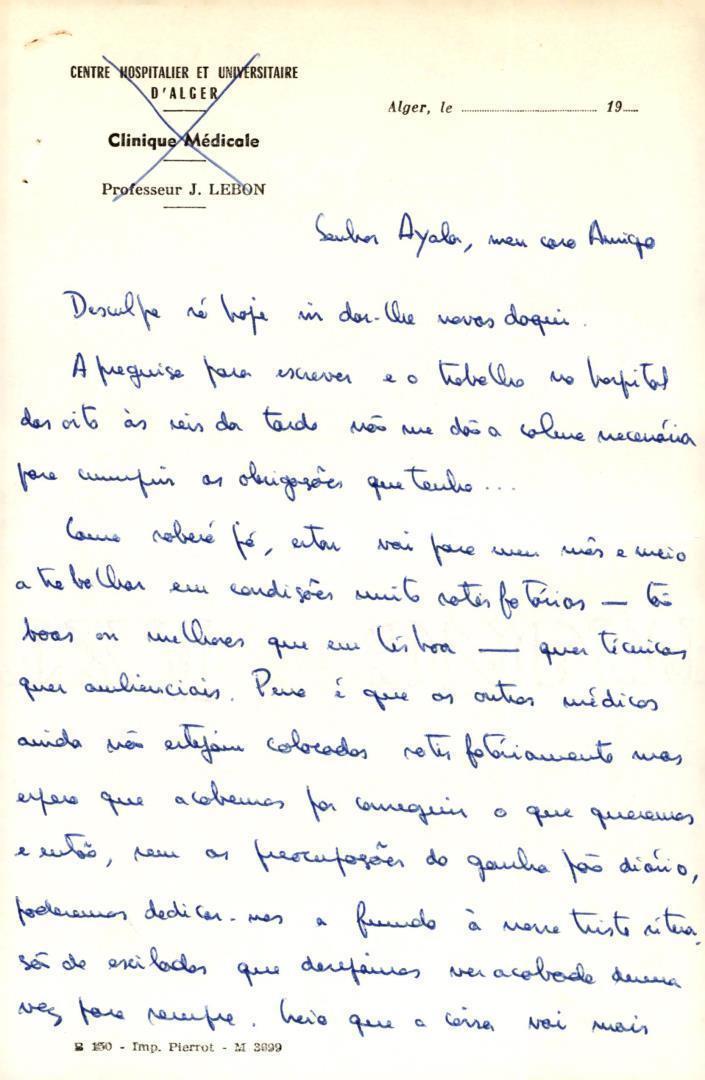 CENTRE HOSPITALIER ET UNIVERSITAIRE
D'ALGER
Clinique Médicale
Professeur J. LEBON
Alger, le 19
Senhor Ayala, meu caro Amigo
Desculpe só hoje ir dar-lhe novas daqui.
A preguiça para escrever e o trabalho no hospital
das oito às seis da tarde não me dão a calma necessária
para cumprir as obrigações que tenho...
Como saberá já, estou vai para um mês e meio
a trabalhar em condições muito satisfatórias — tão
boas ou melhores que em Lisboa — quer técnicas
quer ambienciais. Pena é que os outros médicos
ainda não estejam colocados satisfatóriamente mas
espero que acabemos por conseguir o que queremos
e então, sem as preocupações do ganha pão diário,
poderemos dedicar-nos a fundo à nossa triste situa-
ção de exilados que desejamos ver acabada duma
vez para sempre. Creio que a coisa vai mais
E 150 - Imp. Pierrot - M 3699